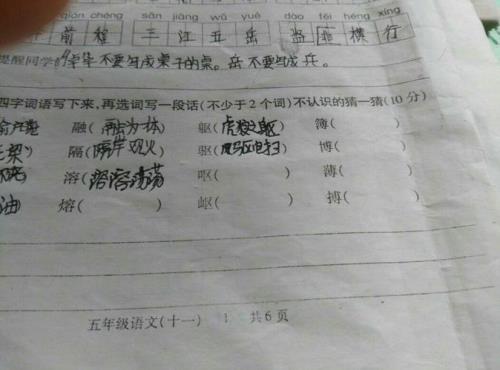 qián chéng sān jiāng wǔ yuè dào fěi héng xíng
前程 三江五岳 盗匪横行
提醒同学
不要写成桌子的桌。岳不要写成兵。
四字词语写下来,再选词写一段话(不少于2个词)不认识的猜一猜(10分)
融(融为一体) 驱( ) 簿( )
隔(隔岸观火) 驱( ) 博( )
溶( ) 呕( ) 薄( )
油 熔( ) 岖( ) 搏( )
五年级语文(十一) 1 共6页